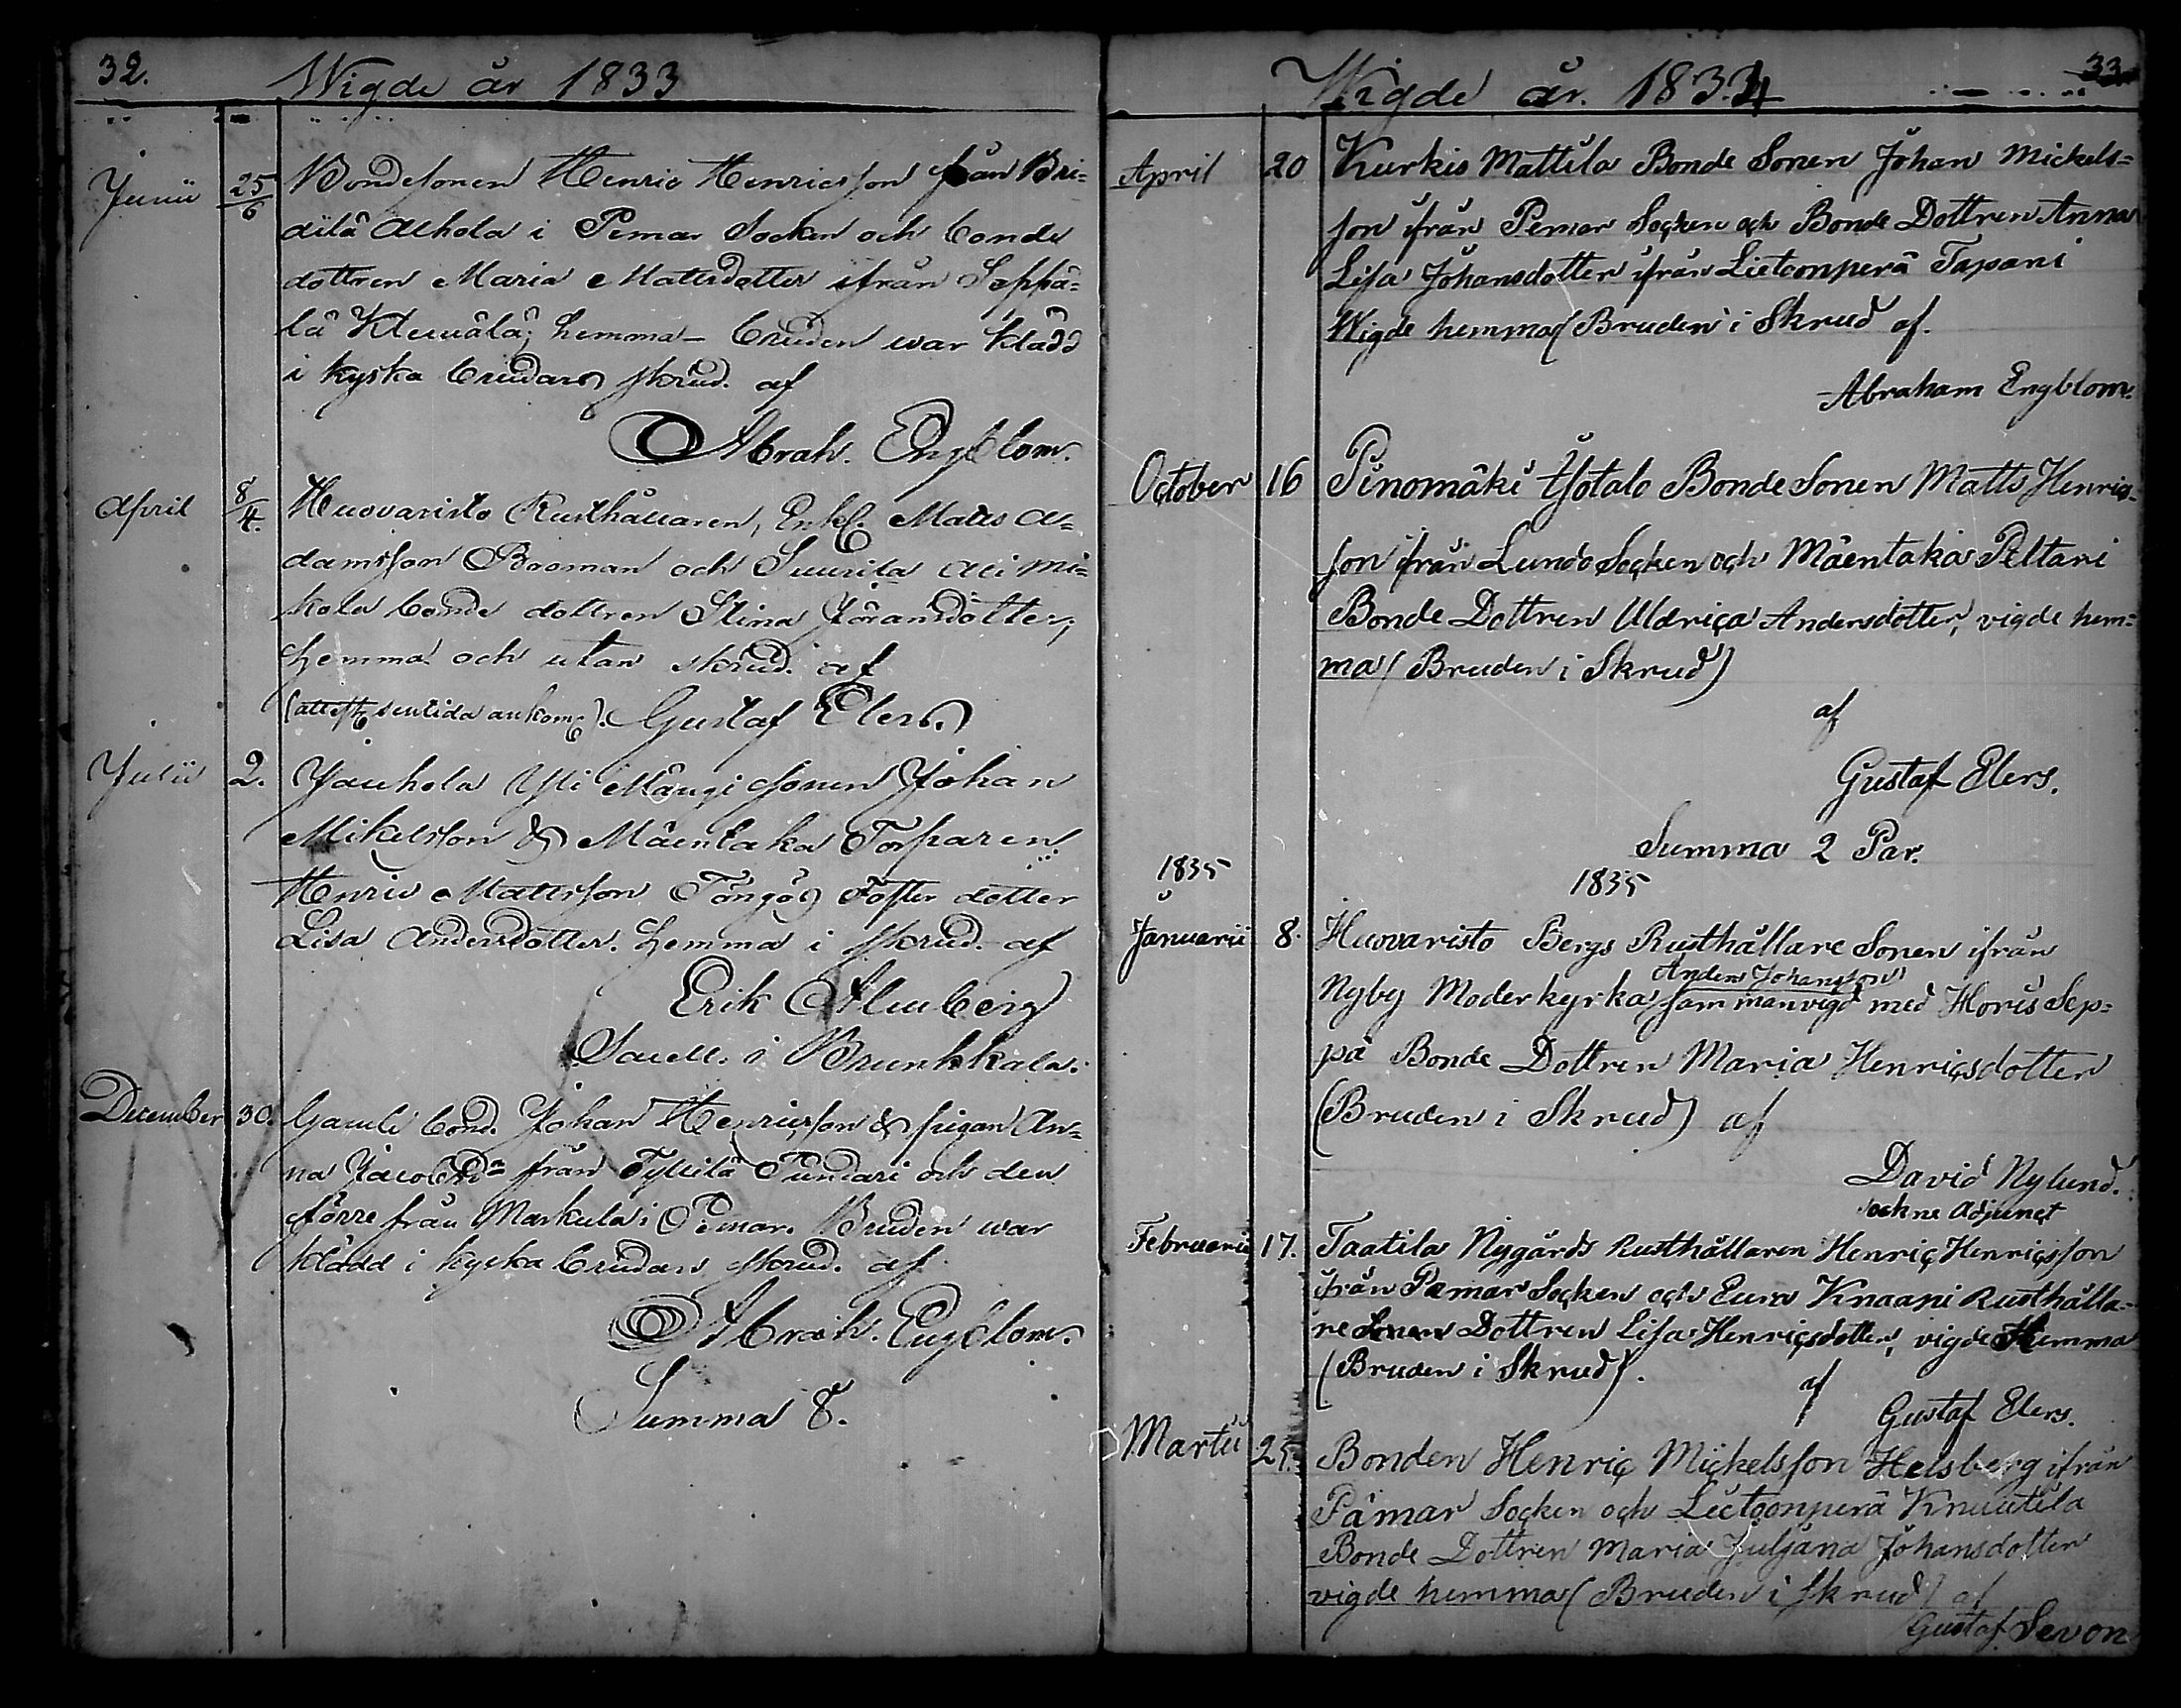 32.
Wigde år 1833
Junii 25/6 Bondesonen Henric Henricsson från Bri-
dilä Alhola i Pemar Socken och bonde
dottren Maria Mattsdotter ifrån Seppä-
lä Klemälä; hemma- bruden war klädd
i kyska brudars skrud. af
Abrah. Engblom.
April 8/4. Huovaristo Rusthållaren, Enkl. Matts A-
damsson Booman och Suurila Ali Mi-
kola bonde dottren Stina Jöransdotter;
hemma och utan skrud. af
Gustaf Elers.
Julii 2. Jauhola Yli Mängi sonen Johan
Mikelsson & Mäentaka Torparen
Henric Mattsson Töngös Foster dotter
Lisa Andersdotter. hemma i skrud. af
Erik Almberg
Sacell. i Brunkkala.
December 30. Gamli bond. Johan Henricsson & pigan An-
na Jacobsdr från Tyllilä Tundari och den
förre från Markula i Pemar. Bruden war
klädd i kyska brudars skrud. af
Abrah. Engblom.
Summa 8.
33
Wigde år. 1834
April 20 Kurkis Mattila Bonde Sonen Johan Mickels-
son ifrån Pemar Socken och Bonde Dottren Anna
Lisa Johansdotter ifrån Lietoonperä Tapani
Wigde hemma (Bruden i Skrud af.
Abraham Engblom.
October 16 Pinomäki Ysotalo Bonde Sonen Matts Henrics-
son ifrån Lundo Socken och Mäentaka Peltari
Bonde Dottren Uldrica Andersdotter, vigde hem-
ma (Bruden i Skrud)
af
Gustaf Elers.
Summa 2 Par.
1835
1835
Januarii 8. Huovaristo Bergs Rusthållare Sonen ifrån
Anders Johansson
Nyby Moderkyrka sammanvigd med Horis Sep-
pä Bonde Dottren Maria Henricsdotter
(Bruden i Skrud) af
David Nylund.
sockne Adjunct
Februarii 17. Taatila Nygårds Rusthållaren Henric Henricsson
ifrån Pemar Socken och Eura Knaapi Rusthålla-
re Sonen Dottren Lisa Henricsdotter, vigde Hemma
(Bruden i Skrud).
af
Gustaf Elers.
Martii 25. Bonden Henric Mickelsson Helsberg ifrån
Pämar Socken och Lietoonperä Knuutila
Bonde Dottren Maria Juljana Johansdotter
vigde hemma (Bruden i skrud) af
Gustaf Sevon